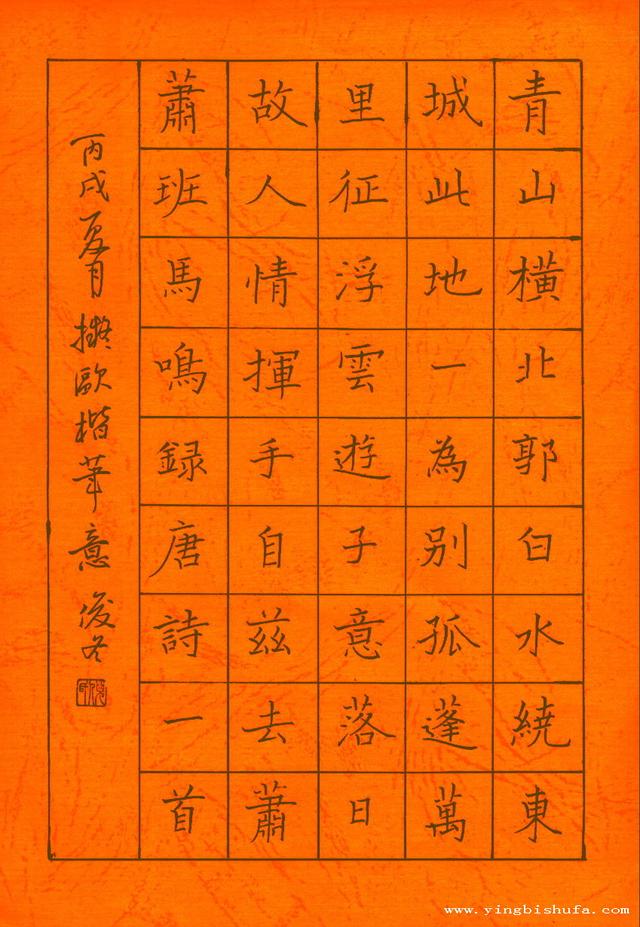 青山橫北郭白水繞東
城此地一為別孤蓬萬
里征浮雲遊子意落日
故人情揮手自茲去蕭
蕭班馬鳴録唐詩一首
丙戌夏月擬歐楷筆意 俊冬
www.yingbishufa.com